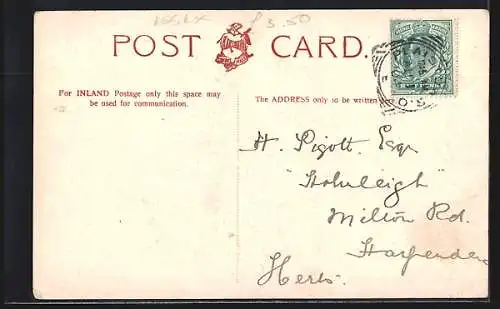 £ 3.50
POST CARD.
For INLAND Postage only this space may
be used for communication.
The ADDRESS only to be written
H. Pigott. Esqr
"Holmleigh"
Milton Rd.
Harpenden
Herts.